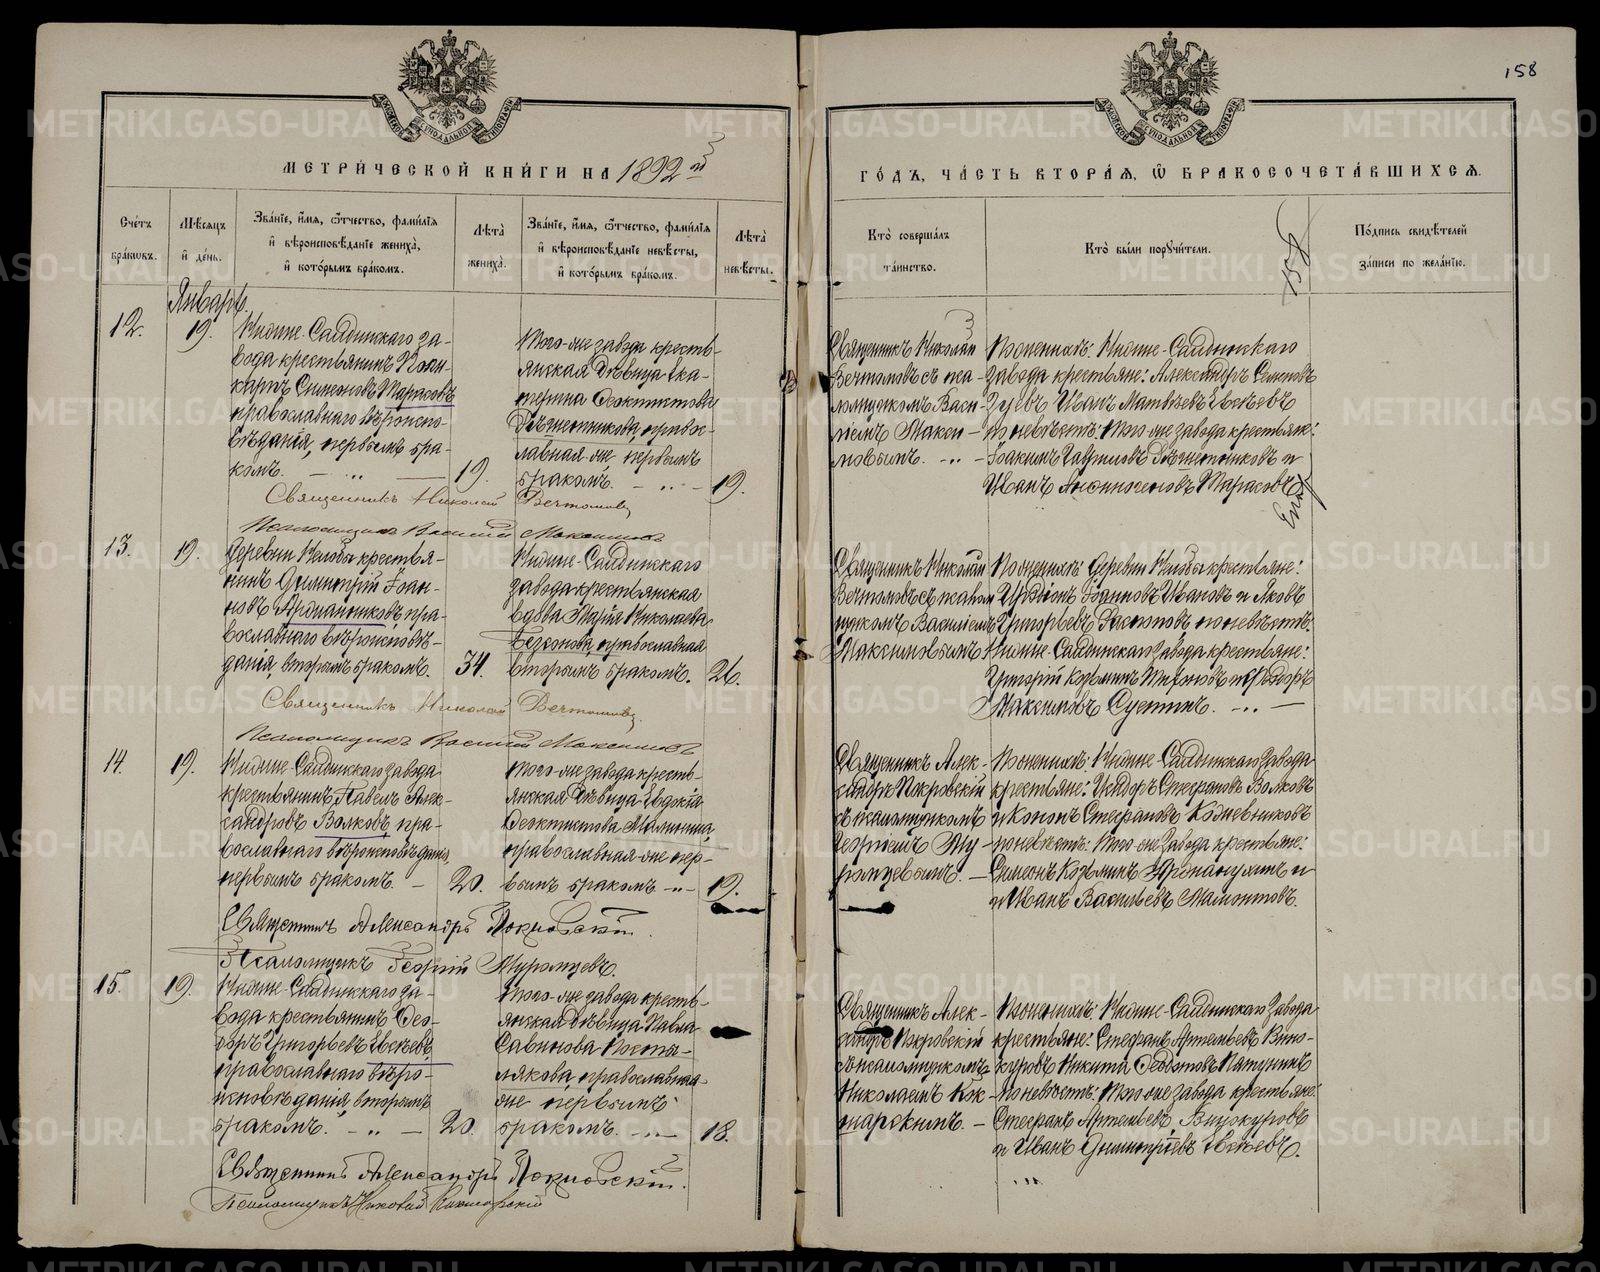 158
МЕТРИ́ЧЕСКОЙ КНИ́ГИ НА 1892 й
ГО́ДЪ, ЧА́СТЬ ВТОРА́Я, Ѿ БРАКОСОЧЕТА́ВШИХСЯ.
Сче́тъ бра́ковъ.
Мѣ́сяцъ и де́нь.
Зва́нїе, и́мя, ѻ́тчество, фами́лїя и вѣроисповѣ́данїе жениха̀, и кото́рымъ бра́комъ.
Лѣ́та жениха̀.
Зва́нїе, и́мя, ѻ́тчество, фами́лїя и вѣроисповѣ́данїе невѣ́сты, и кото́рымъ бра́комъ.
Лѣ́та невѣ́сты.
Кто̀ соверша́лъ та́инство.
Кто̀ бы́ли порꙋчи́тели.
По́дпись свидѣ́телей за́писи по жела́нїю.
158
Январь.
12.
19.
Нижне-Салдинскаго за-
вода крестьянинъ
Симеоновъ Тарасовъ
православнаго вѣроиспо-
вѣданія, первымъ бра-
комъ. — „ —
19.
Того-же завода кресть-
янская дѣвица Ека-
терина Феоктистова
правос-
лавная-же первымъ
бракомъ. — „ —
19.
Священникъ Николай
Вечтомовъ съ пса-
ломщикомъ Васи-
ліемъ Макси-
мовымъ. — „ —
По женихѣ: Нижне-Салдинскаго
завода крестьяне: Александръ
Зуевъ Иванъ Матвѣевъ Евсѣевъ
по невѣстѣ: того-же завода крестьяне:
Іоакимъ Гавриловъ и
Иванъ Тарасовъ
Священникъ Николай Вечтомовъ
Псаломщикъ Василій Максимовъ
13.
19.
Деревни крестья-
нинъ Димитрій Іоан-
новъ пра-
вославнаго вѣроисповѣ-
данія, вторымъ бракомъ.
34.
Нижне-Салдинскаго
завода крестьянская
вдова Марія Николаева
православная
вторымъ бракомъ.
26.
Священникъ Николай
Вечтомовъ съ псалом
щикомъ Василіемъ
Максимовымъ
По женихѣ: деревни крестьяне:
Іоанновъ Ивановъ и Яковъ
Григорьевъ по невѣстѣ:
Нижне-Салдинскаго завода крестьяне:
Григорій Козьминъ и Ѳедоръ
Максимовъ — „ —
Священникъ Николай Вечтомовъ
Псаломщикъ Василій Максимовъ
14.
19.
Нижне-Салдинскаго завода
крестьянинъ Павелъ Алек-
сандровъ Волковъ пра-
вославнаго вѣроисповѣданія,
первымъ бракомъ. —
20.
Того-же завода кресть-
янская дѣвица Евдокія
Феоктистова
православная-же пер-
вымъ бракомъ — „ —
19.
Священникъ Алек-
сандръ Покровскій
съ псаломщикомъ
Георгіемъ Му-
ромцевымъ. —
По женихѣ: Нижне-Салдинскаго завода
крестьяне: Исидоръ Стефановъ Волковъ
и Кононъ Стефановъ
по невѣстѣ: того-же завода крестьяне:
Симеонъ Козьминъ и
Иванъ Васильевъ Мамонтовъ.
Священникъ Александръ Покровскій.
Псаломщикъ Георгій Муромцевъ.
15.
19.
Нижне-Салдинскаго за-
вода крестьянинъ Ѳео-
доръ Григорьевъ Евсѣевъ,
православнаго вѣро-
исповѣданія, вторымъ
бракомъ. — „ —
20.
Того-же завода кресть-
янская дѣвица Павла
Савинова
православная-
же первымъ
бракомъ. — „ —
18.
Священникъ Алек-
сандръ Покровскій
съ псаломщикомъ
Николаемъ Кок-
шарскимъ. —
По женихѣ: Нижне-Салдинскаго завода
крестьяне: Стефанъ Артемьевъ Вино-
куровъ Никита Ѳедотовъ
по невѣстѣ: того-же завода крестьяне:
Стефанъ Артемьевъ Винокуровъ
и Иванъ Димитріевъ Евсѣевъ.
Священникъ Александръ Покровскій.
Псаломщикъ Николай Кокшарскій
METRIKI.GASO-URAL.RU